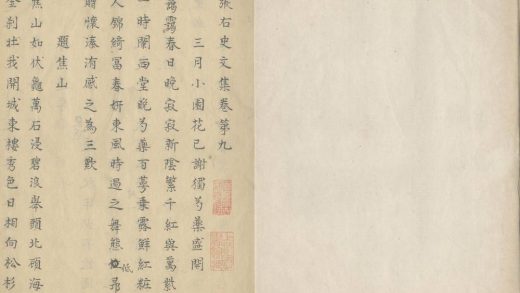 張右史文集卷第九
三月小園花已謝獨芍藥盛開
靄靄春日晚寂寂新陰繁千紅與萬紫
一時闌西堂晚芍藥百萼乘露鮮紅粧
人錦綺冨春妍東風時過之舞態低昻
贈懷溱洧感之為三歎
題焦山
焦山如伏龜萬石浸碧浪舉頸北頋海
金刹壯我開城東樓秀色日相向松杉